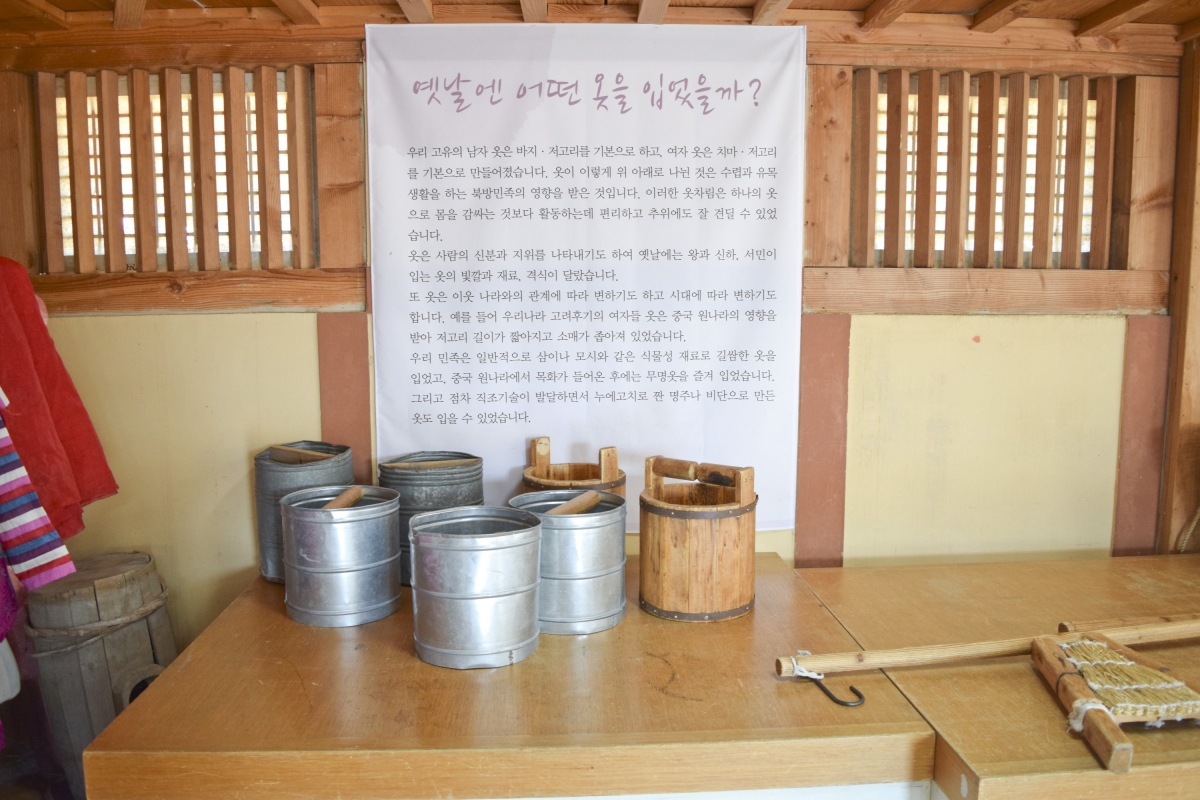 옛날엔 어떤 옷을 입었을까?
우리 고유의 남자 옷은 바지 · 저고리를 기본으로 하고, 여자 옷은 치마 · 저고리
를 기본으로 만들어졌습니다. 옷이 이렇게 위 아래로 나뉜 것은 수렵과 유목
생활을 하는 북방민족의 영향을 받은 것입니다. 이러한 옷차림은 하나의 옷
으로 몸을 감싸는 것보다 활동하는데 편리하고 추위에도 잘 견딜 수 있었
습니다.
옷은 사람의 신분과 지위를 나타내기도 하여 옛날에는 왕과 신하, 서민이
입는 옷의 빛깔과 재료, 격식이 달랐습니다.
또 옷은 이웃 나라와의 관계에 따라 변하기도 하고 시대에 따라 변하기도
합니다. 예를 들어 우리나라 고려후기의 여자들 옷은 중국 원나라의 영향을
받아 저고리 길이가 짧아지고 소매가 좁아져 있었습니다.
우리 민족은 일반적으로 삼이나 모시와 같은 식물성 재료로 길쌈한 옷을
입었고, 중국 원나라에서 목화가 들어온 후에는 무명옷을 즐겨 입었습니다.
그리고 점차 직조기술이 발달하면서 누에고치로 짠 명주나 비단으로 만든
옷도 입을 수 있었습니다.